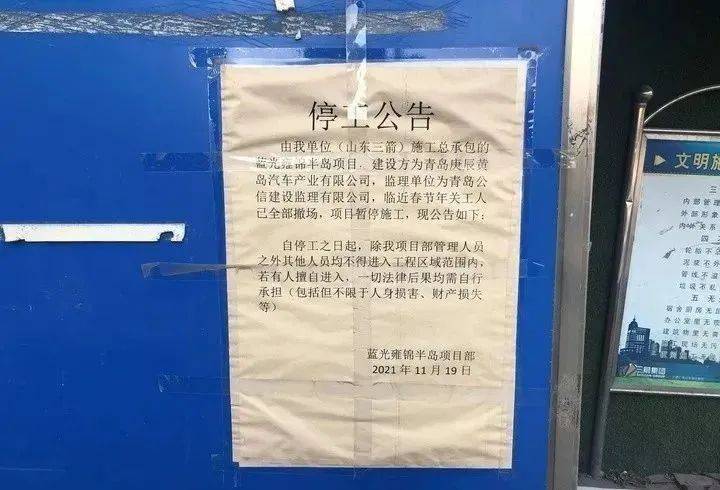 停工公告
由我单位（山东三箭）施工总承包的
蓝光雍锦半岛项目，建设方为青岛庚辰黄
岛汽车产业有限公司，监理单位为青岛公
信建设监理有限公司，临近春节年关工人
已全部撤场，项目暂停施工，现公告如下：
自停工之日起，除我项目部管理人员
之外其他人员均不得进入工程区域范围内，
若有人擅自进入，一切法律后果均需自行
承担（包括但不限于人身损害、财产损失
等）
蓝光雍锦半岛项目部
2021 年 11 月 19 日
文明施
三
内部管理
外部形象
内外关系
四
轮胎不
泥浆不外
管线不
垃圾不乱
五 无
宿舍厨房无
办公室里无
建筑物里无
现场无污
三箭集团